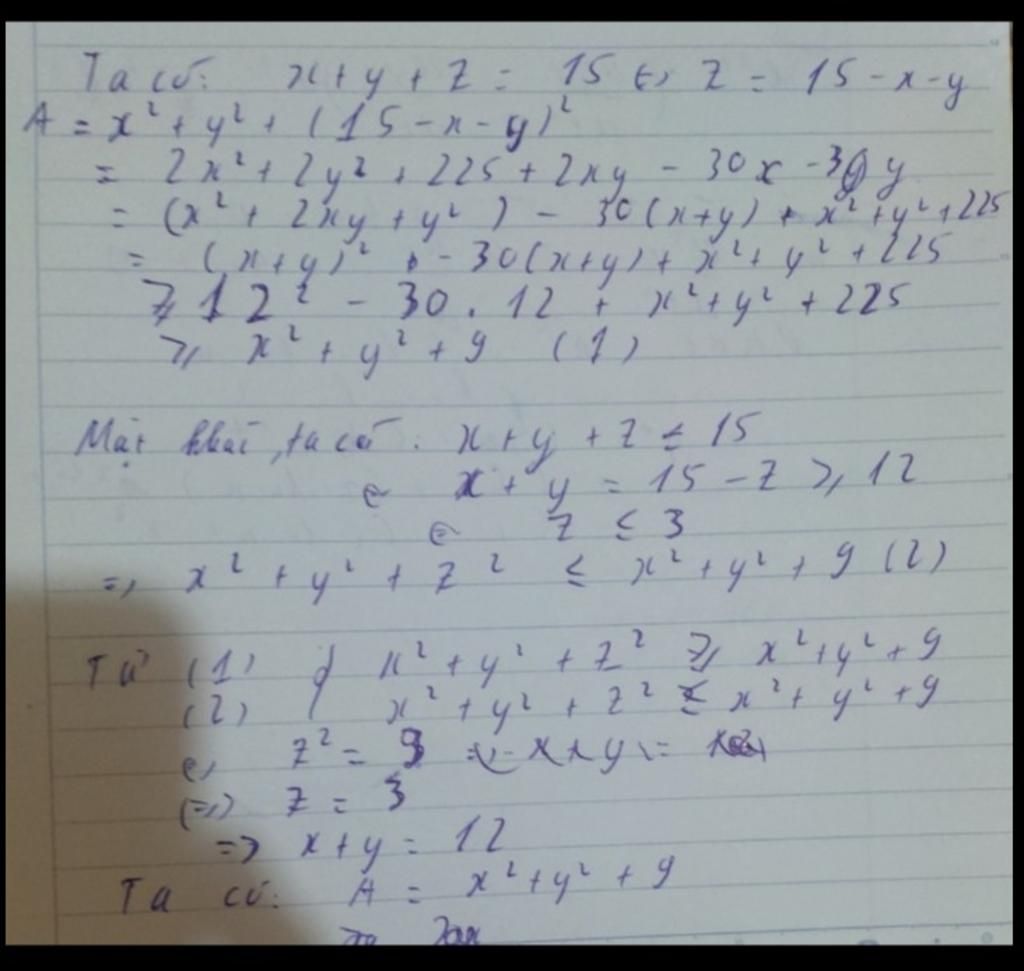 Ta có: x + y + z = 15 ⇔ z = 15 - x - y
A = x² + y² + (15 - x - y)²
= 2x² + 2y² + 225 + 2xy - 30x - 30y
= (x² + 2xy + y²) - 30(x+y) + x² + y² + 225
= (x+y)² - 30(x+y) + x² + y² + 225
≥ 12² - 30.12 + x² + y² + 225
≥ x² + y² + 9 (1)
Mặt khác, ta có: x + y + z ≤ 15
⇔ x + y = 15 - z ≥ 12
⇔ z ≤ 3
=> x² + y² + z² ≤ x² + y² + 9 (2)
Từ (1) { x² + y² + z² ≥ x² + y² + 9
(2) x² + y² + z² ≤ x² + y² + 9
⇔ z² = 9
⇔ z = 3
=> x + y = 12
Ta có: A = x² + y² + 9